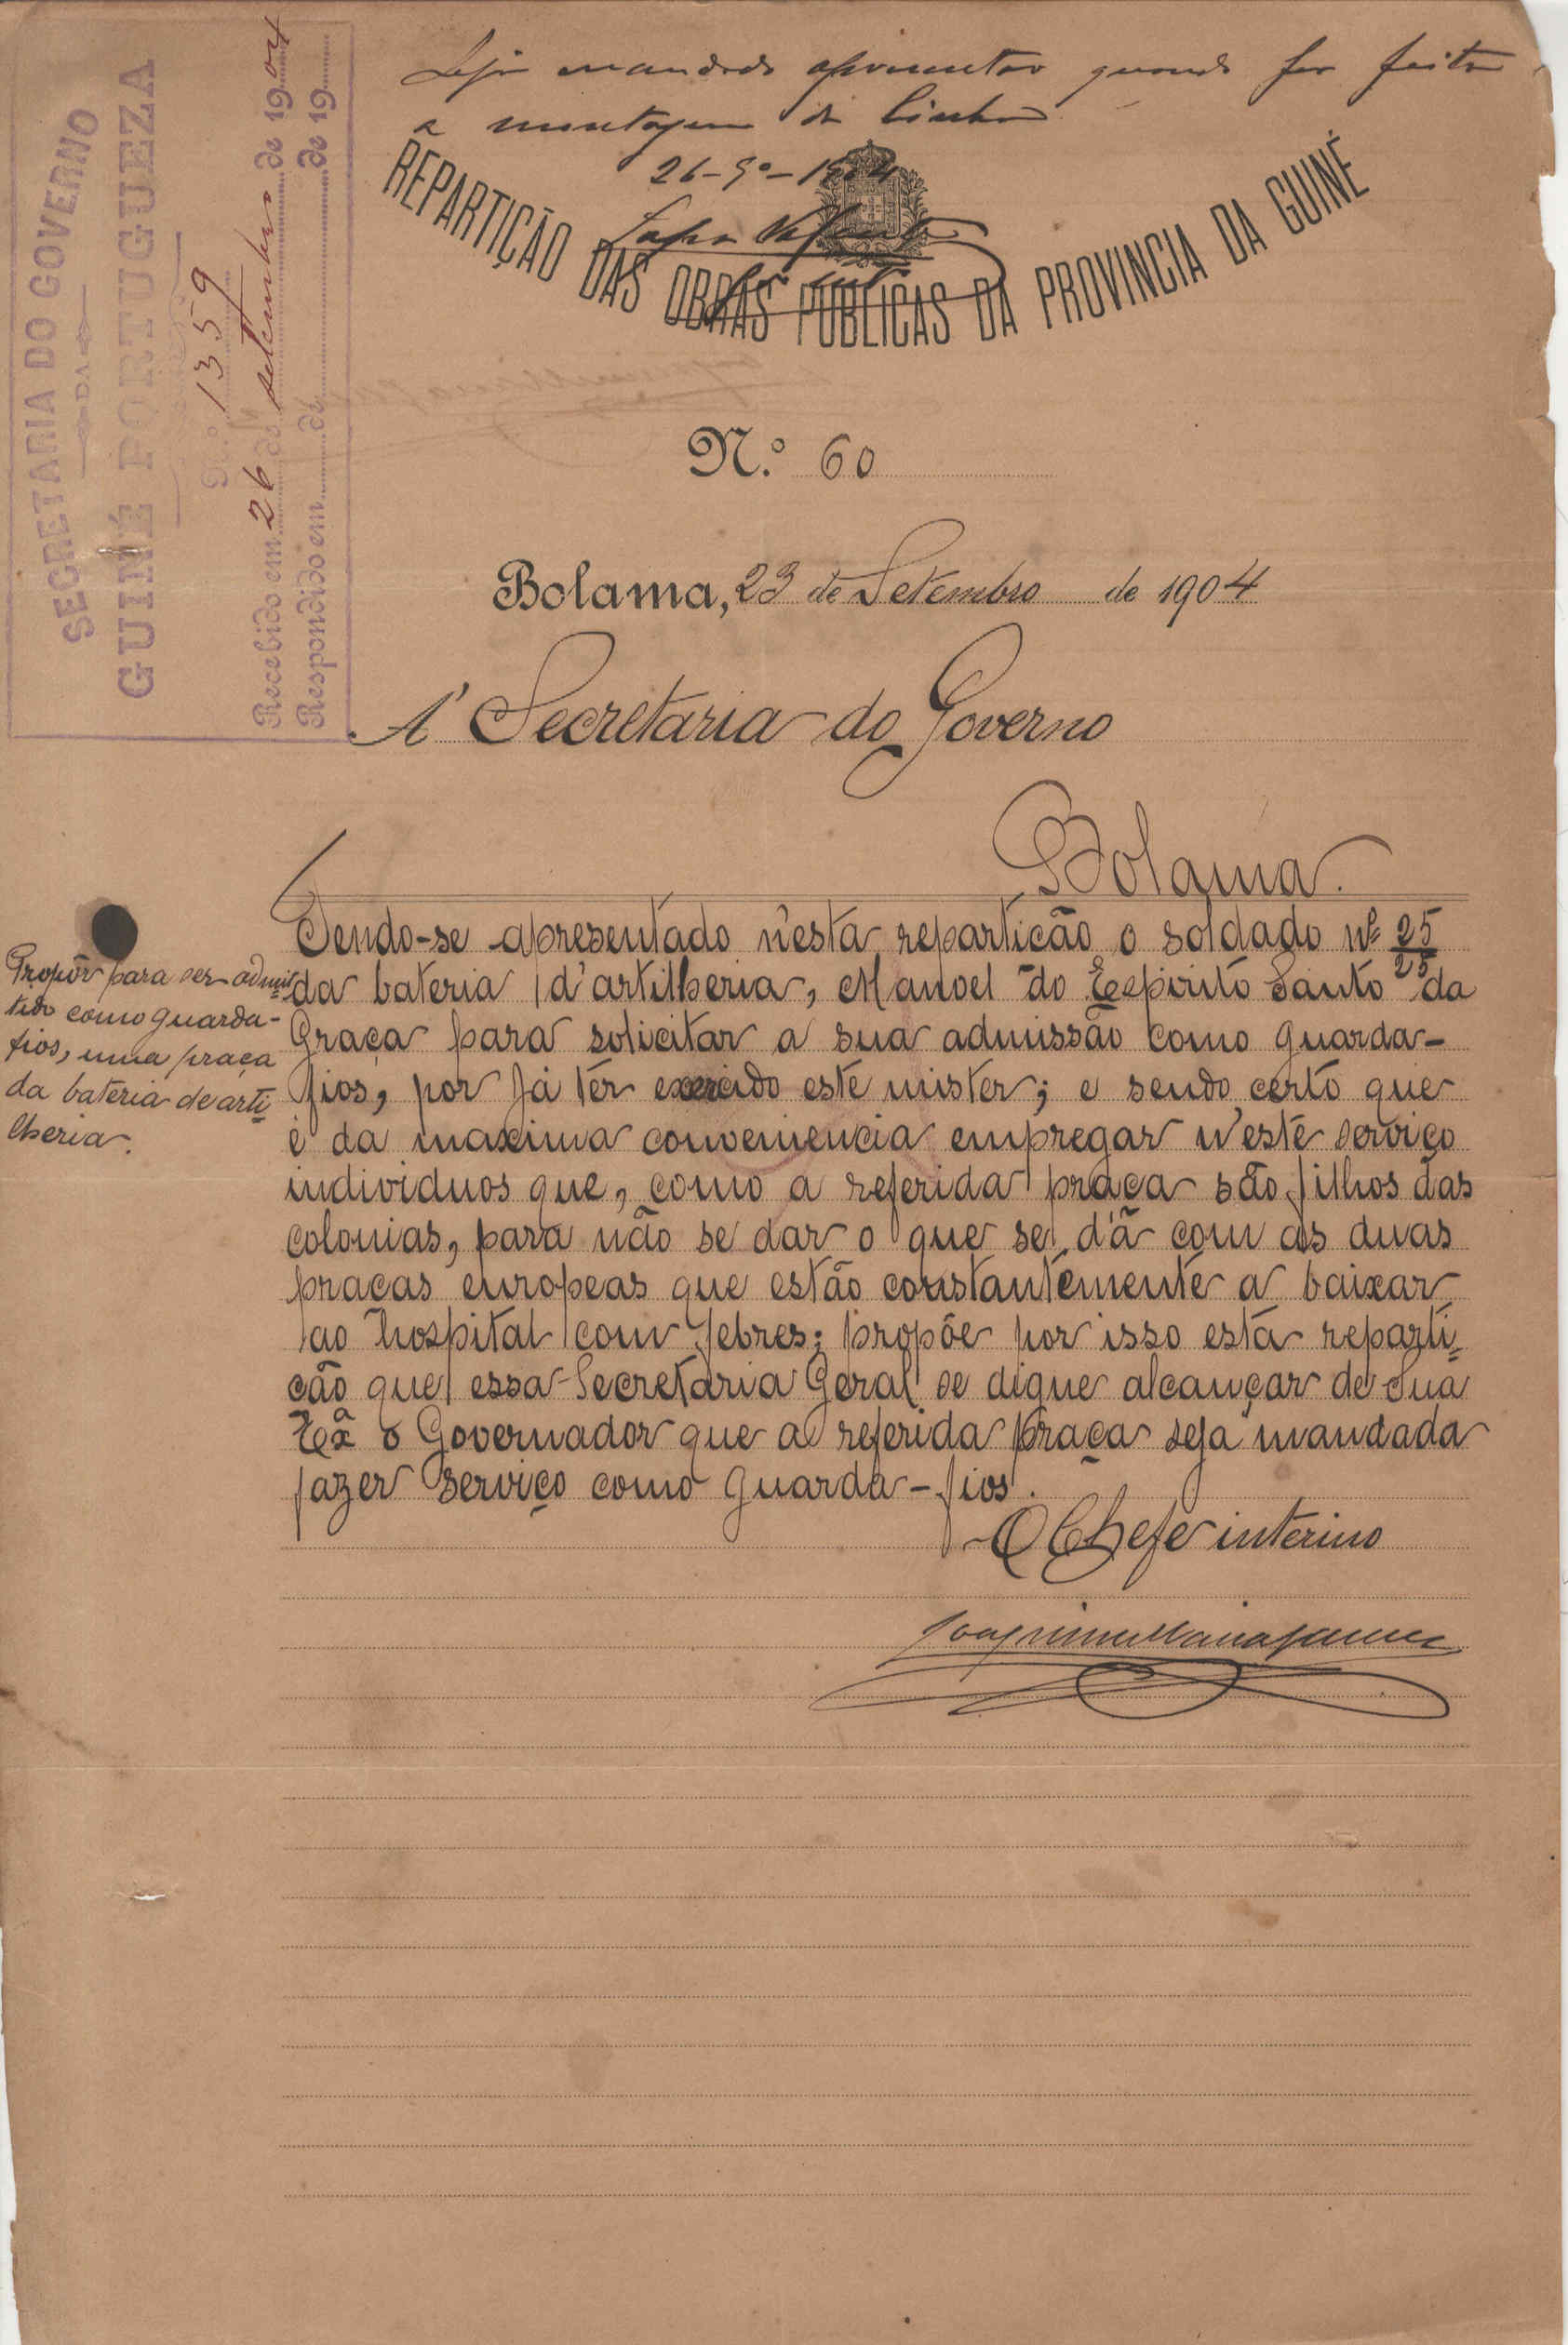 Seja mandado apresentar quando for feita
a montagem da linha
26-9º-1904
REPARTIÇÃO DAS OBRAS PUBLICAS DA PROVINCIA DA GUINÉ
SECRETARIA DO GOVERNO
DA
GUINÉ PORTUGUEZA
N.º 1359
Recebido em 26 de setembro de 1904
Respondido em de de 19
N.º 60
Bolama, 23 de Setembro de 1904
A' Secretaria do Governo
Bolama.
Propôr para ser admit
tido como guarda-
fios, uma praça
da bateria de arti
lheria.
Tendo-se apresentado n'esta repartição o soldado nº 25/25
da bateria d'artilheria, Manoel do Espirito Santo da
Graça para solicitar a sua admissão como guarda-
fios, por já ter exercido este mister; e sendo certo que
é da maxima conveniencia empregar n'este serviço
individuos que, como a referida praça são filhos das
colonias, para não se dar o que se dá com as duas
praças europeas que estão constantemente a baixar
ao hospital com febres; propõe por isso esta reparti
ção que essa Secretaria Geral se digne alcançar de Sua
Exª o Governador que a referida praça seja mandada
fazer serviço como guarda-fios.
O Chefe interino